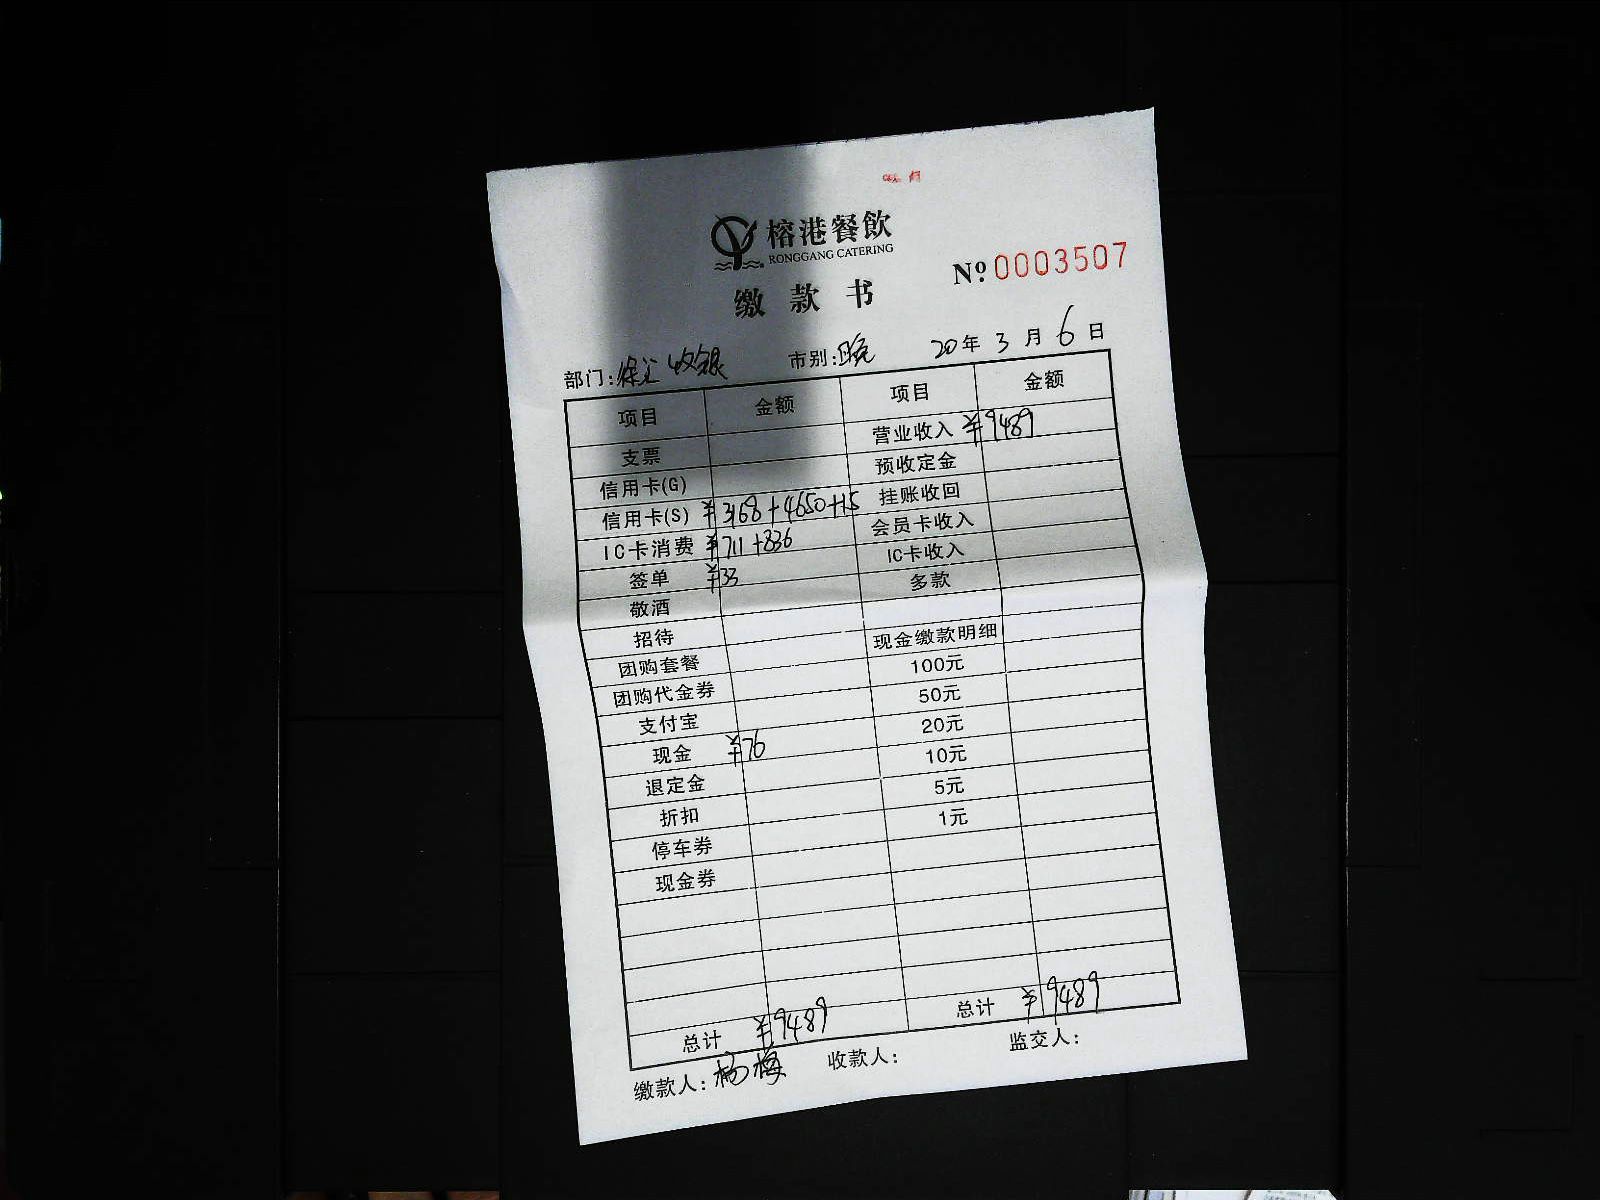 榕港餐飲
RONGGANG CATERING
缴款书
№ 0003507
部门:徐汇收银 市别:晚 20年3月6日
项目 金额 项目 金额
支票 营业收入 ¥9489
信用卡(G) 预收定金
信用卡(S) ¥3168+4650+15 挂账收回
IC卡消费 ¥711+836 会员卡收入
签单 ¥33 IC卡收入
敬酒 多款
招待 现金缴款明细
团购套餐 100元
团购代金券 50元
支付宝 20元
现金 ¥76 10元
退定金 5元
折扣 1元
停车券
现金券
总计 ¥9489 总计 ¥9489
缴款人:杨梅 收款人: 监交人: